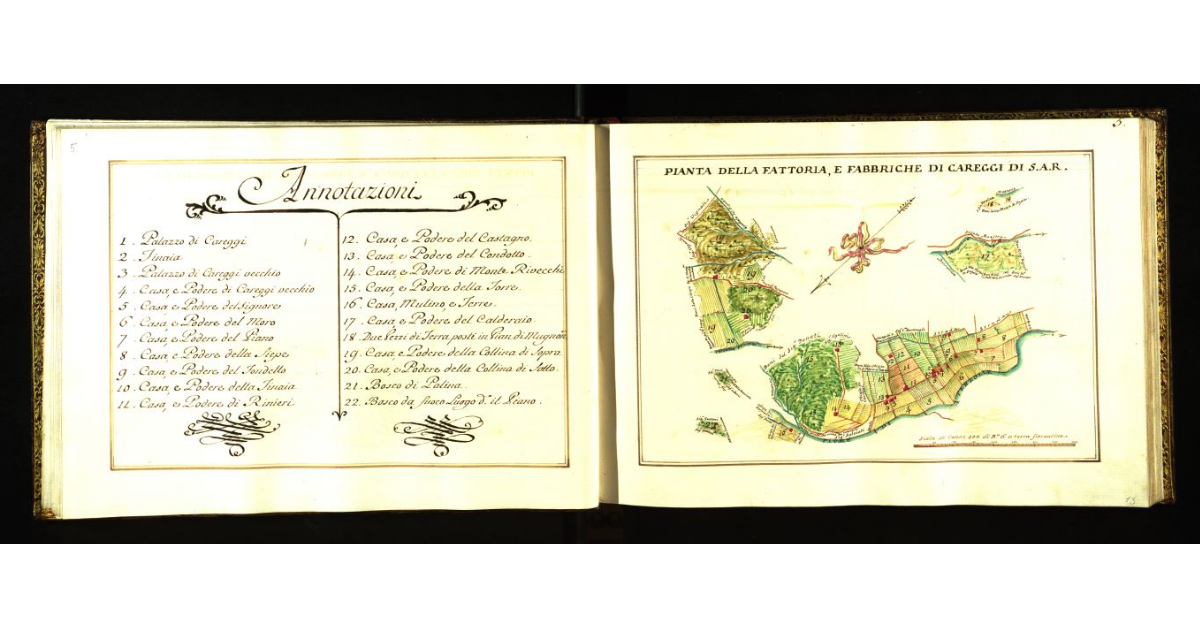 5
Annotazioni
1. Palazzo di Careggi
2. Tinaia
3. Palazzo di Careggi vecchio
4. Casa, e Podere di Careggi vecchio
5. Casa e Podere del Signore
6. Casa, e Podere del Moro
7. Casa, e Podere del Piano
8. Casa e Podere della Siepe
9. Casa, e Podere del Fondello
10. Casa, e Podere della Tinaia
11. Casa, e Podere di Rinieri
12. Casa, e Podere del Castagno.
13. Casa, e Podere del Condotto.
14. Casa, e Podere di Monte Rivecchi
15. Casa, e Podere della Torre.
16. Casa, Mulino, e Terre.
17. Casa, e Podere del Calderaio.
18. Due Pezzi di Terra posti in Pian di Mugnone
19. Casa, e Podere della Collina di Sopra
20. Casa, e Podere della Collina di Sotto.
21. Bosco di Palina.
22. Bosco da fuoco Luogo d.º il Piano.
3.
PIANTA DELLA FATTORIA, E FABBRICHE DI CAREGGI DI S.A.R.
18
22
21
19
20
17
12
11
10
13
14
15
16
9
8
7
6
5
4
Scala di Canne 200 di B.ª 6 a terra fiorentine
13